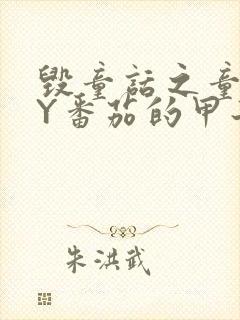 毁童话之童
Y番茄的甲
朱洪武